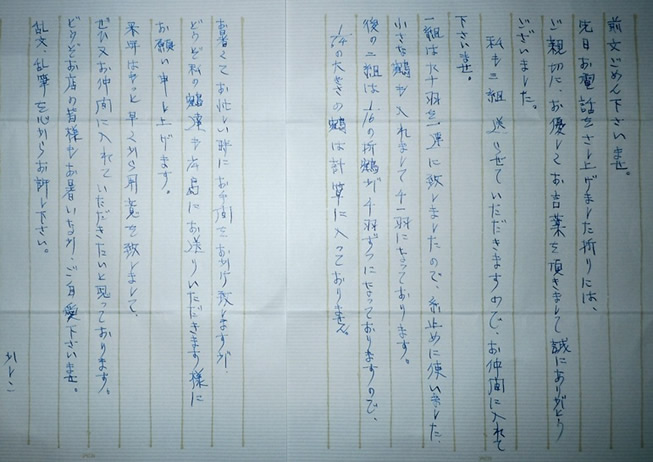 前文ごめん下さいませ。
先日お電話をさし上げました折りには、
ご親切に、お優しいお言葉を頂きまして誠にありがとう
ございました。
私も三組送らせていただきますので、お仲間に入れて
下さいませ。
一組は大千羽を一連に致しましたので、糸止めに使いました
小さな鶴も入れまして千一羽になっております。
後の二組は1/16の折鶴が千羽ずつになっておりますので、
1/4の大きさの鶴は計算に入っておりません。
お暑くてお忙しい時にお手間をおかけ致しますが、
どうぞ私の鶴連も広島にお送りいただきます様に
お願い申し上げます。
来年はもっと早くから用意を致しまして、
ぜひ又お仲間に入れていただきたいと思っております。
どうぞお店の皆様もお暑いなか、ご自愛下さいませ。
乱文、乱筆を心からお許し下さい。